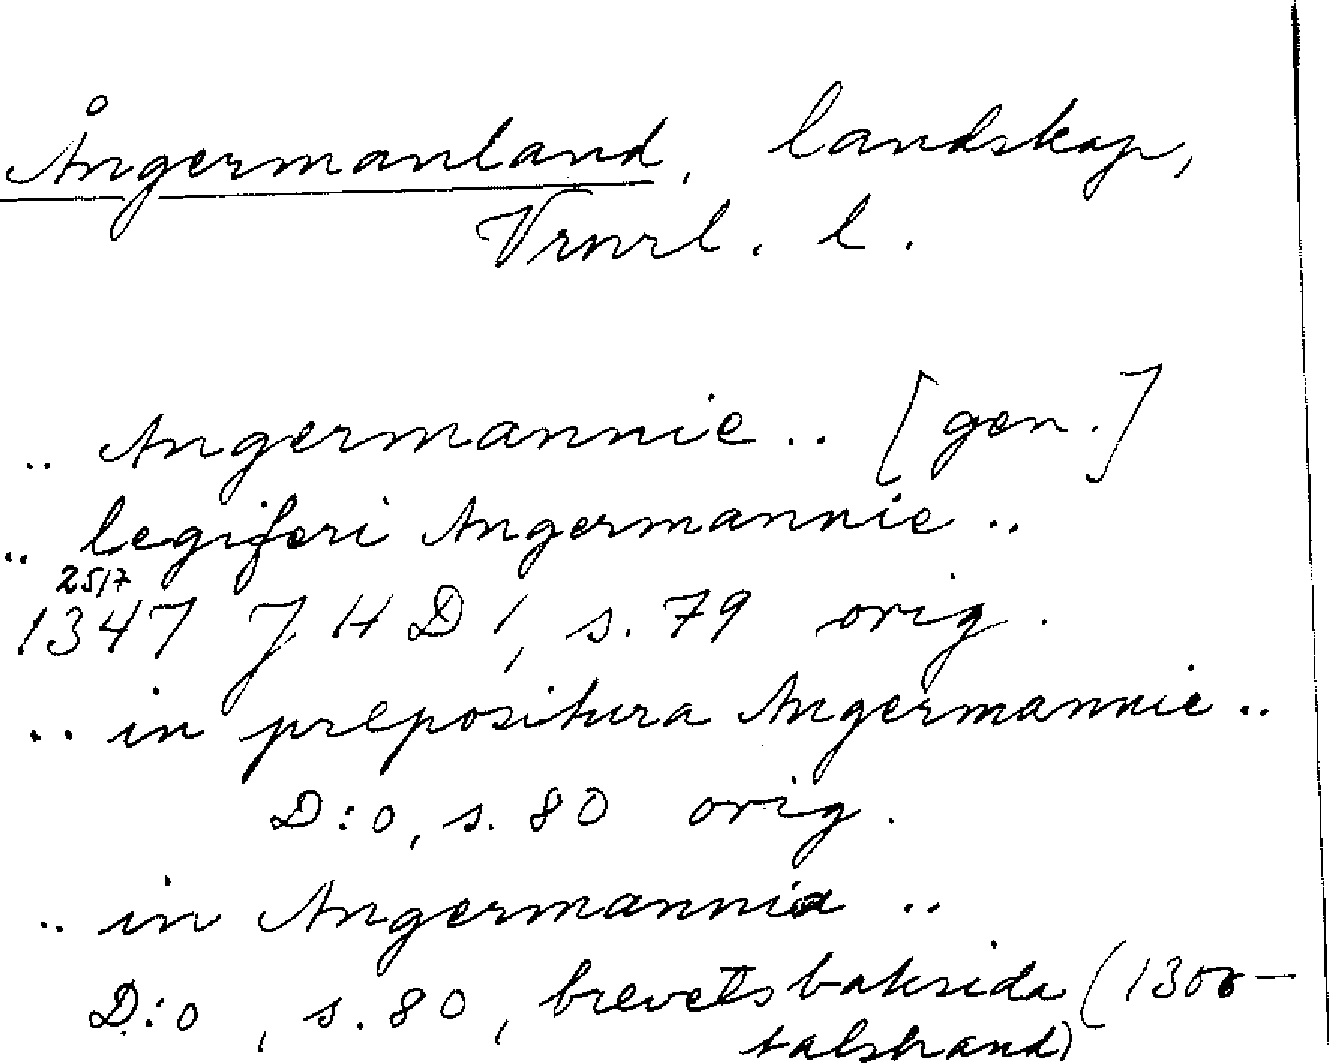 Ångermanland, landskap,
Vrnrl. l.
.. Angermannie .. [gen.]
.. legiferi Angermannie ..
25/7
1347 JHD 1, s. 79 orig.
.. in prepositura Angermannie ..
D:o, s. 80 orig.
.. in Angermannia ..
D:o, s. 80, brevets baksida (1300-
talshand)